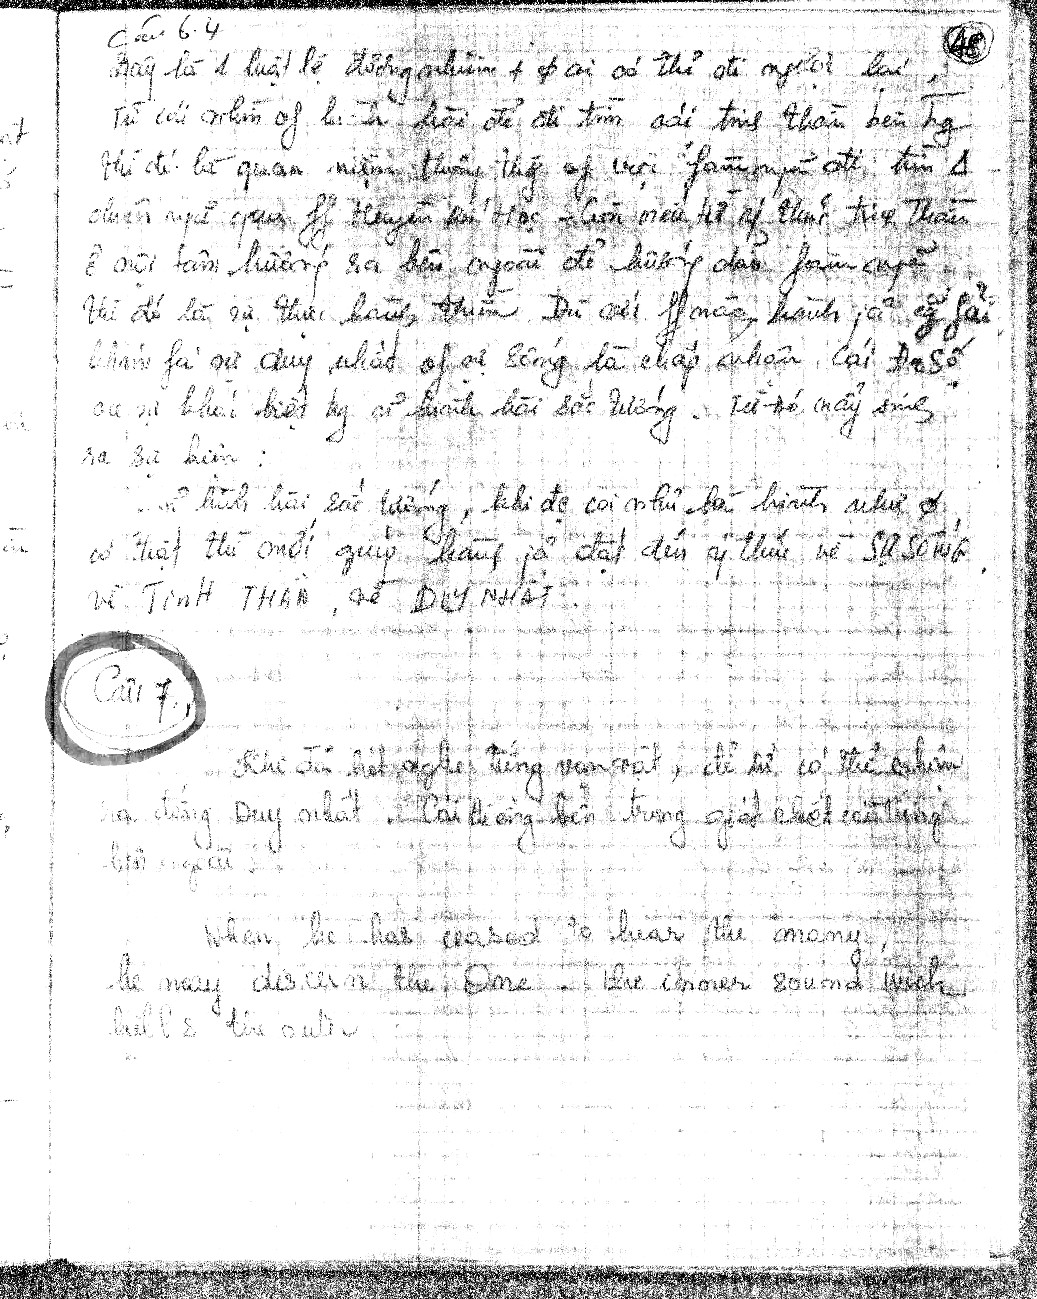 48
Câu 6.4
Đây là 1 luật lệ đương nhiên + ø ai có thể đi ngược lại,
Từ cái nhìn of hình hài để đi tìm cái tinh thần bên tg
thì đó là quan niệm thông thg of vọi fàm ngã đi tìm 1
chân ngã qua ff Huyền bí Học - Còn nếu từ ý thức tinh Thần
ở nội tâm hướng ra bên ngoài để hướng dẫn fàm ngã
thì đó là sự thực hành thiền. Dù với ff nào, hành jả cg fải
khám fá sự duy nhất of sự sống là chấp nhận cái Đa Số
và sự khác biệt tg cở hình hài sắc tướng. Từ đó nẩy sinh
ra sự kiện :
hình hài sắc tướng, khi đc coi như là hình như ø
có thật thì mới giúp hành jả đạt đến ý thức về SỰ SỐNG,
về TINH THẦN, về DUY NHẤT.
Câu 7.
Khi đã hết nghe tiếng vạn vật, đệ tử có thể nhận
ra đấng Duy nhất. Cái tiếng bên trong giết chết cái tiếng
bên ngoài.
When he has ceased to hear the many,
he may discern the One. the inner sound wich
kills the outer